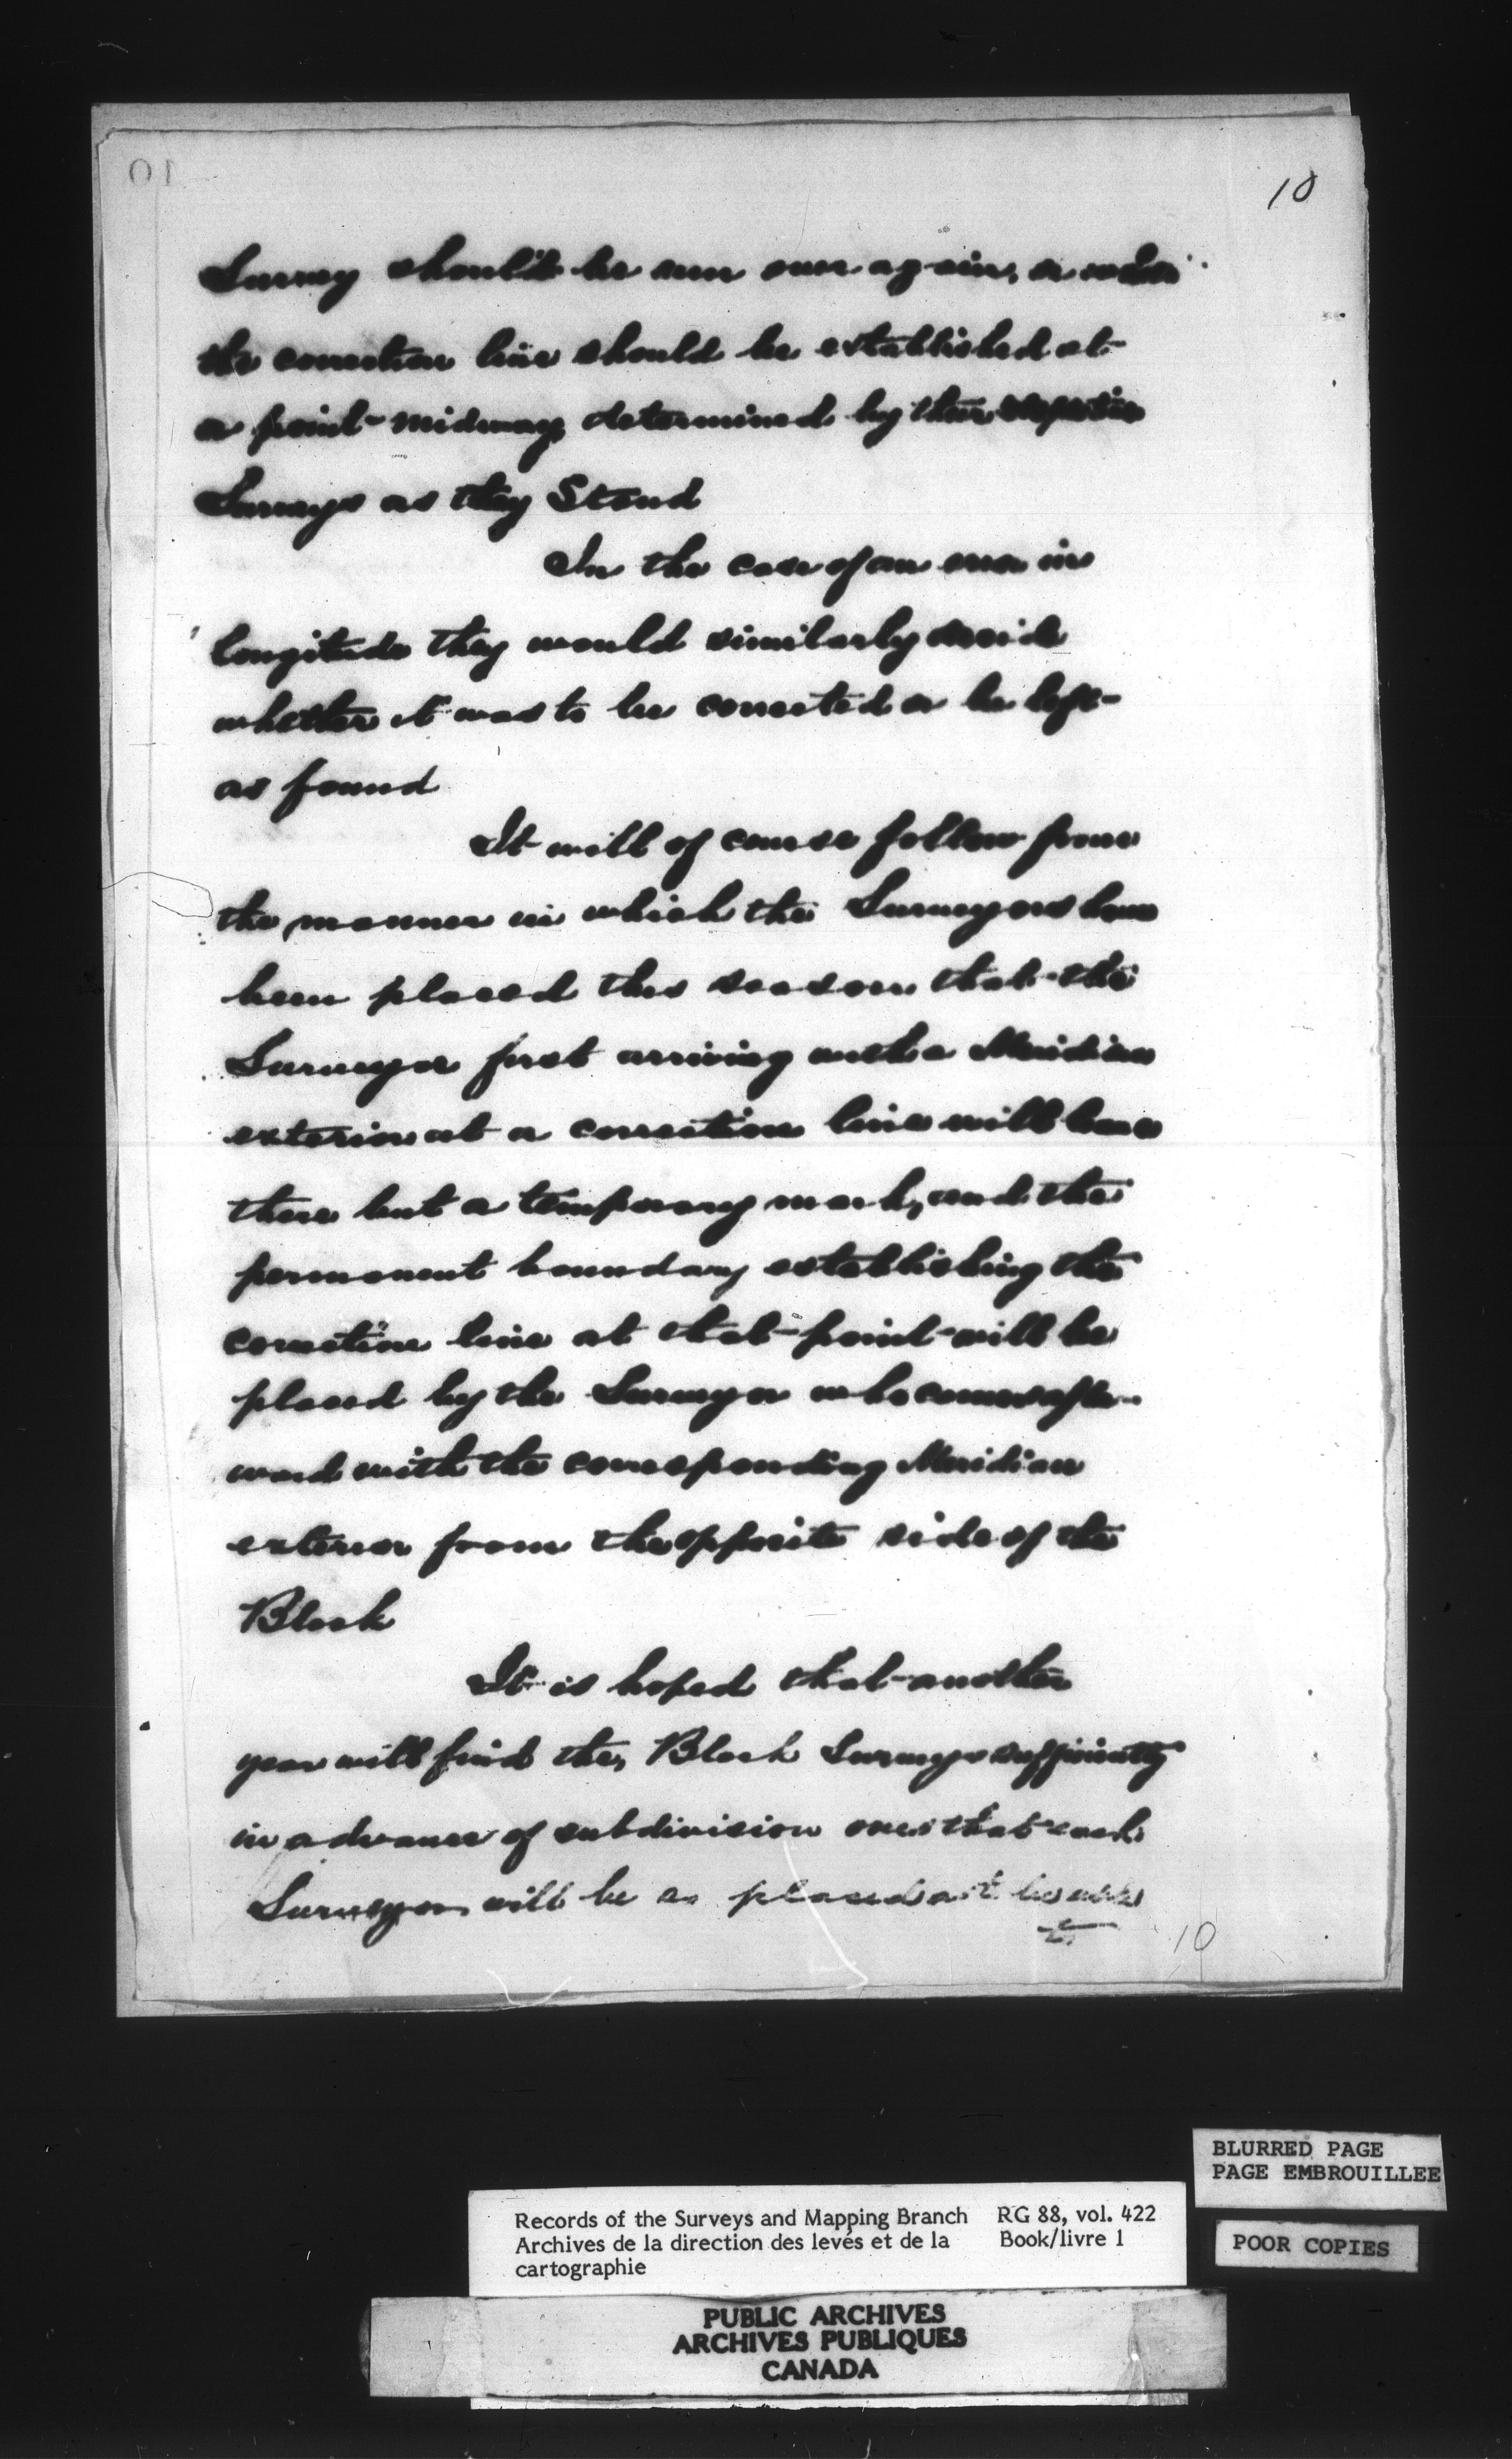 10
Survey should be run over again, or whether
the correction line should be established at
a point midway determined by their respective
Surveys as they Stand
In the case of an error in
longitude they would similarly decide
whether it was to be corrected or be left
as found
It will of course follow from
the manner in which the Surveyors have
been placed this season that the
Surveyor first arriving with a Meridian
exterior at a correction line will leave
there but a temporary mark, and the
permanent boundary establishing the
correction line at that point will be
placed by the Surveyor who comes after-
ward with the corresponding Meridian
exterior from the opposite side of the
Block
It is hoped that another
year will find the Block Surveys sufficiently
in advance of subdivision ones that each
Surveyor will be so placed as to
10
BLURRED PAGE
PAGE EMBROUILLEE
Records of the Surveys and Mapping Branch RG 88, vol. 422
Archives de la direction des levés et de la Book/livre 1
cartographie
POOR COPIES
PUBLIC ARCHIVES
ARCHIVES PUBLIQUES
CANADA